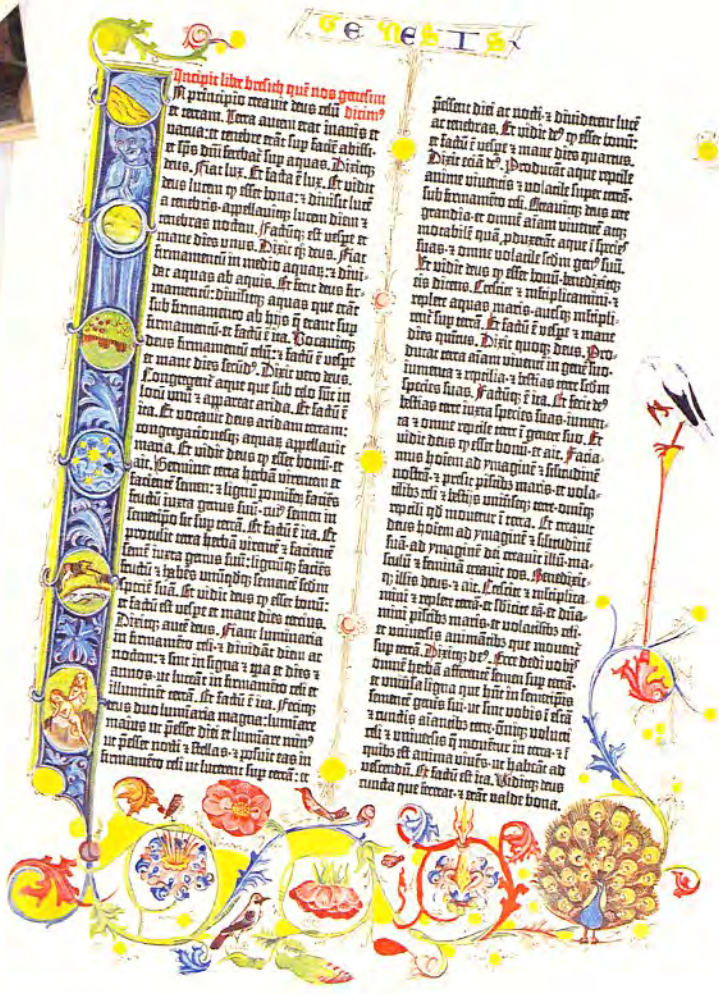 GENESIS
Incipit liber bresith quē nos genesim
In principio creavit deus celū dicim⁹
et terram. Terra autem erat inanis et
vacua: et tenebre erāt sup faciē abissi:
et sp̄s dn̄i ferebat̄ sup aquas. Dixitq̄
deus. Fiat lux. Et facta ē lux. Et vidit
deus lucem ꝙ esset bona: ⁊ divisit lucē
a tenebris·appellavitq̄ lucem diem ⁊
tenebras noctem. Factūq̄ est vespe et
mane dies unus. Dixit q̄ deus. Fiat
firmamentū in medio aquaꝝ: ⁊ divi-
dat aquas ab aquis. Et fecit deus fir-
mamentū: divisitq̄ aquas que erāt
sub firmamento ab hijs q̄ erant sup
firmamentū: et factū ē ita. Vocavitq̄
deus firmamentū celū: ⁊ factū ē vespe
et mane dies secūd⁹. Dixit vero deus.
Congregent̄ aque que sub celo sūt in
locū unū ⁊ appareat arida. Et factū ē
ita. Et vocavit deus aridam terram:
congregacionesq̄ aquaꝝ appellavit
maria. Et vidit deus ꝙ esset bonū·et
ait. Germinet terra herbā virentem et
facientē semen: ⁊ lignū pomifeꝝ faciēs
fructū iuxta genus suū·cui⁹ semen in
semetipso sit sup terrā. Et factū ē ita. Et
protulit terra herbā virentē ⁊ facientē
semē iuxta genus suū: lignūq̄ faciēs
fructū ⁊ habēs unūqdq̄ sementē scdm
specie suā. Et vidit deus ꝙ esset bonū:
et factū est vespe et mane dies tercius.
Dixitq̄ autē deus. Fiant luminaria
in firmamēto celi·⁊ dividāt diem ac
noctem: ⁊ sint in signa ⁊ tpa et dies ⁊
annos·ut luceāt in firmamēto celi et
illuminēt terrā. Et factū ē ita. Fecitq̄
deus duo luminaria magna: lumiare
maius ut p̄esset diei et lumiare min⁹
ut p̄esset nocti ⁊ stellas·⁊ posuit eas in
firmamēto celi ut lucerent sup terrā: et
p̄essent diei ac nocti·⁊ dividerent lucē
ac tenebras. Et vidit de⁹ ꝙ esset bonū:
et factū ē vespe ⁊ mane dies quartus.
Dixit eciā de⁹. Producāt aque reptile
anime viventis ⁊ volatile super terrā·
sub firmamēto celi. Creavitq̄ deus cete
grandia·et omnē aīam viventē atq̄
motabilē quā ꝓduxerāt aque ī species
suas·⁊ omne volatile scdm gen⁹ suū.
Et vidit deus ꝙ esset bonū·benedixitq̄
eis dicens. Crescite ⁊ mltiplicamini·⁊
replete aquas maris·avesq̄ mltipli-
cent̄ sup terrā. Et factū ē vespe ⁊ mane
dies quītus. Dixit quoq̄ deus. Pro-
ducat terra aīam viventē in genē suo·
iumenta ⁊ reptilia·⁊ bestias terre scdm
species suas. Factūq̄ ē ita. Et fecit de⁹
bestias terre iuxta species suas·iumen-
ta ⁊ omne reptile terre ī genere suo. Et
vidit deus ꝙ esset bonū·et ait. Facia-
mus hoīem ad ymaginē ⁊ silitudinē
nostrā·⁊ presit piscib⁹ maris·et vola-
tilib⁹ celi ⁊ bestijs universeq̄ terre·omniq̄
reptili qd movetur ī terra. Et creavit
deus hoīem ad ymaginē ⁊ silitudinē
suā·ad ymaginē dei creavit illū·ma-
sculū ⁊ feminā creavit eos. Benedixit-
q̄ illis deus·⁊ ait. Crescite ⁊ mltiplica-
mini ⁊ replete terrā·et sbicite eā·et dn̄a-
mini piscib⁹ maris·et volatilib⁹ celi·
et universis animātib⁹ que movent̄
sup terrā. Dixitq̄ de⁹. Ecce dedi vobis
omnē herbā afferentē semen sup terrā·
et universa ligna que hn̄t in semetipis
sementē genis sui·ut sint vobis ī escā
⁊ cunctis aīantib⁹ terre·omniq̄ volucri
celi ⁊ universis q̄ movent̄ur in terra·⁊ ī
quib⁹ est anima vivēs·ut habeāt ad
vescendū. Et factū est ita. Viditq̄ deus
cuncta que fecerat·⁊ erāt valde bona.